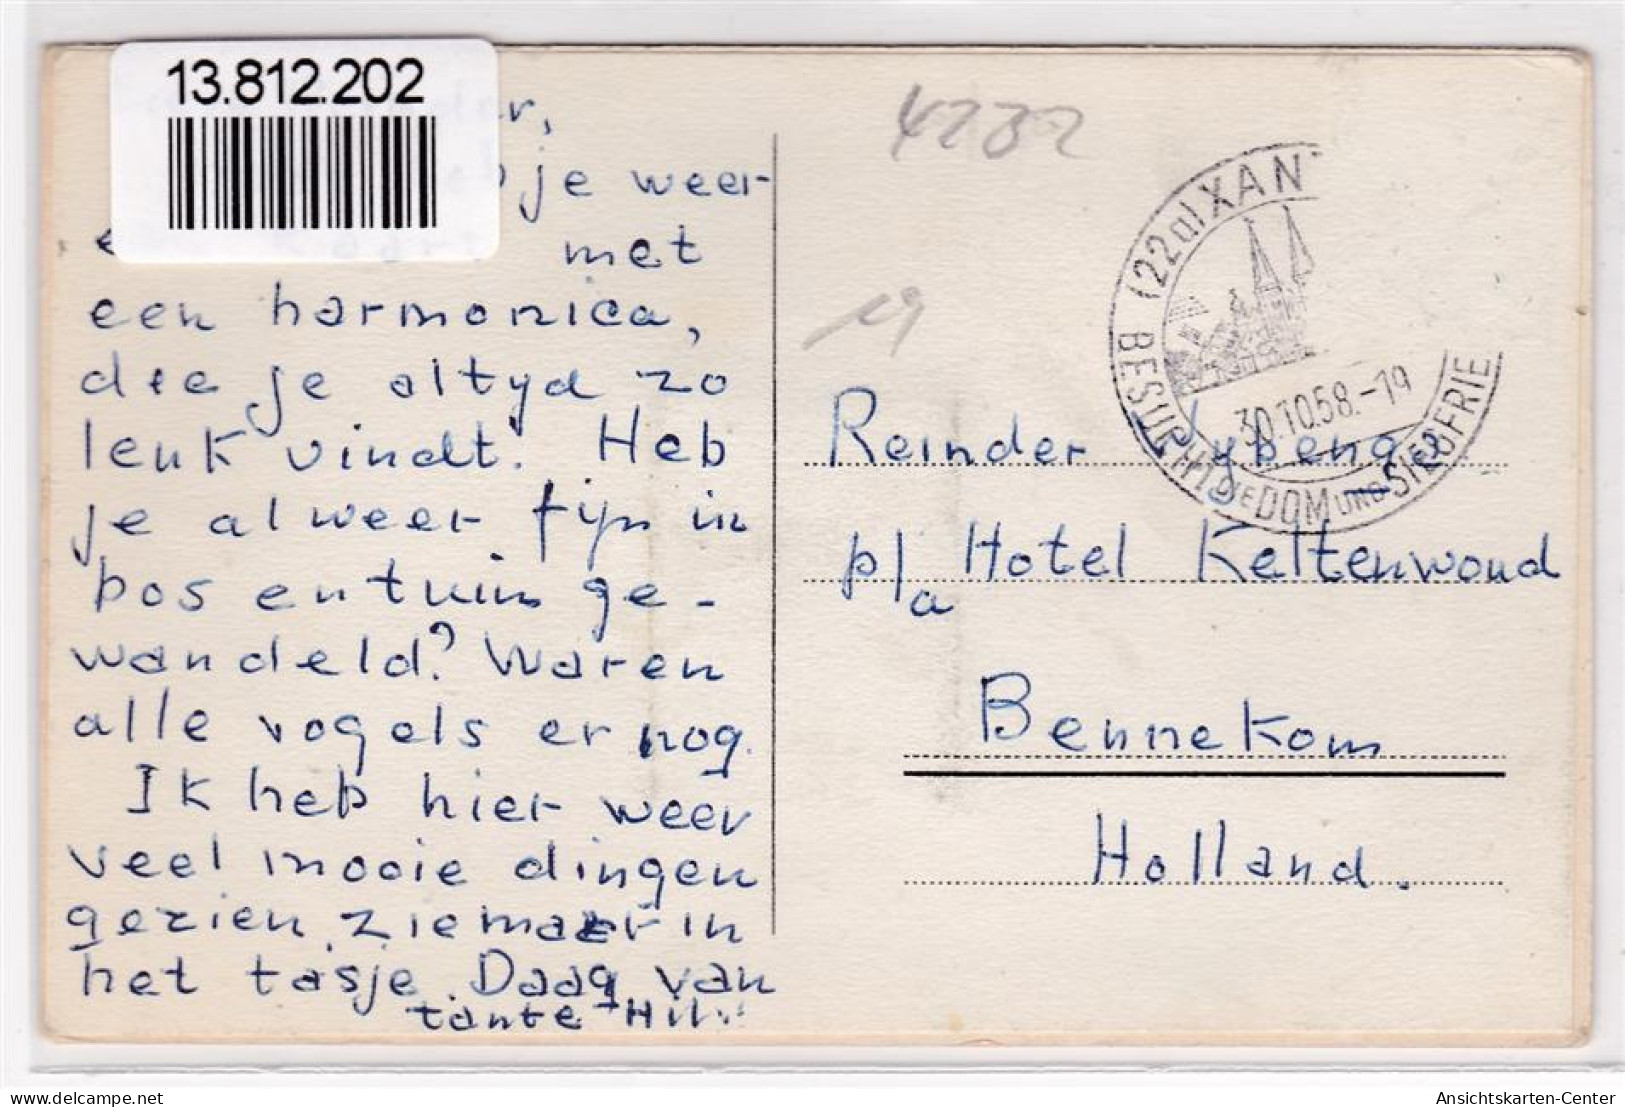 13.812.202
r,
je weer
met
een harmonica,
die je altyd zo
leuk vindt. Heb
je alweer fijn in
bos en tuin ge-
wandeld? Waren
alle vogels er nog.
Ik heb hier weer
veel mooie dingen
gezien, zie maar in
het tasje. Daag van
tante
4232
19
(22a) XANT
BESUCHT DIE DOM UND SIEGFRIE
30.10.58.-19
Reinder
p/a Hotel Keltenwoud
Bennekom
Holland.
delcampe.net
Ansichtskarten-Center